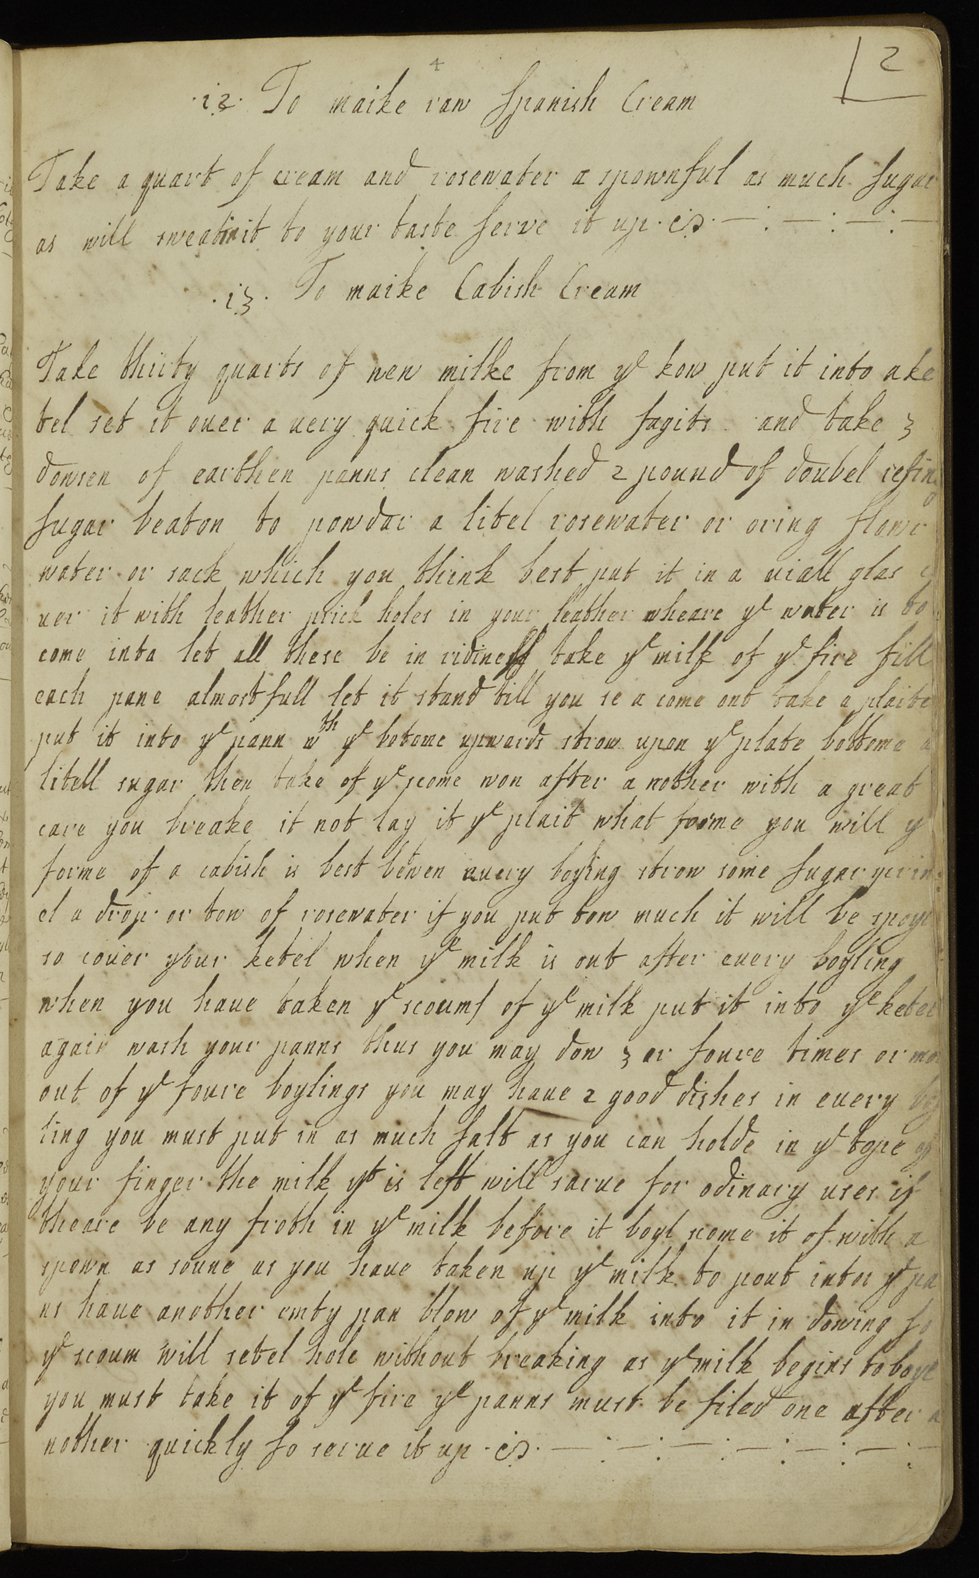 2
4
·12· To maike raw Spanish Cream
Take a quart of cream and rosewater a spownful as much Sugar
as will sweatinit to your taste serve it up
·13· To maike Cabish Cream
Take thirty quarts of new milke from yͤ kow put it into a ke
tel set it ouer a uery quick fire with fagits and take 3
dowsen of earthen panns clean washed 2 pound of doubel refin
Sugar beaton to powdar a litel rosewater or oring flowr
water or sack which you think best put it in a uiall glas
uer it with leather prick holes in your leather wheare yͤ water is to
come into let all these be in ridiness take yͤ milk of yͤ fire fill
each pane almost full let it stand till you se a come ont take a plaite
put it into yͤ pann wth yͤ botome upwards strow upon yͤ plate bottome a
litell sugar then take of yͤ scome won after a nother with a great
care you breake it not lay it yͤ plait what forme you will yͤ
forme of a cabish is best betwen euery boyling strow some Sugar
el a drop or tow of rosewater if you put tow much it will be spoyl
so couer your ketel when yͤ milk is out after euery boyling
when you haue taken yͤ scoums of yͤ milk put it into yͤ ketel
again wash your panns thus you may dow 3 or foure times or mo
out of yͤ foure boylings you may haue 2 good dishes in euery boy
ling you must put in as much salt as you can holde in yͤ tope of
your finger the milk yt is left will sarue for odinary uses if
theare be any froth in yͤ milk before it boyl scome it of with a
spown as soune as you haue taken up yͤ milk to pout into yͤ pa
ns haue another emty pan blow of yͤ milk into it in dowing so
yͤ scoum will setel hole without breaking as yͤ milk begins to boyl
you must take it of yͤ fire yͤ panns must be filed one after a
nother quickly so serue it up